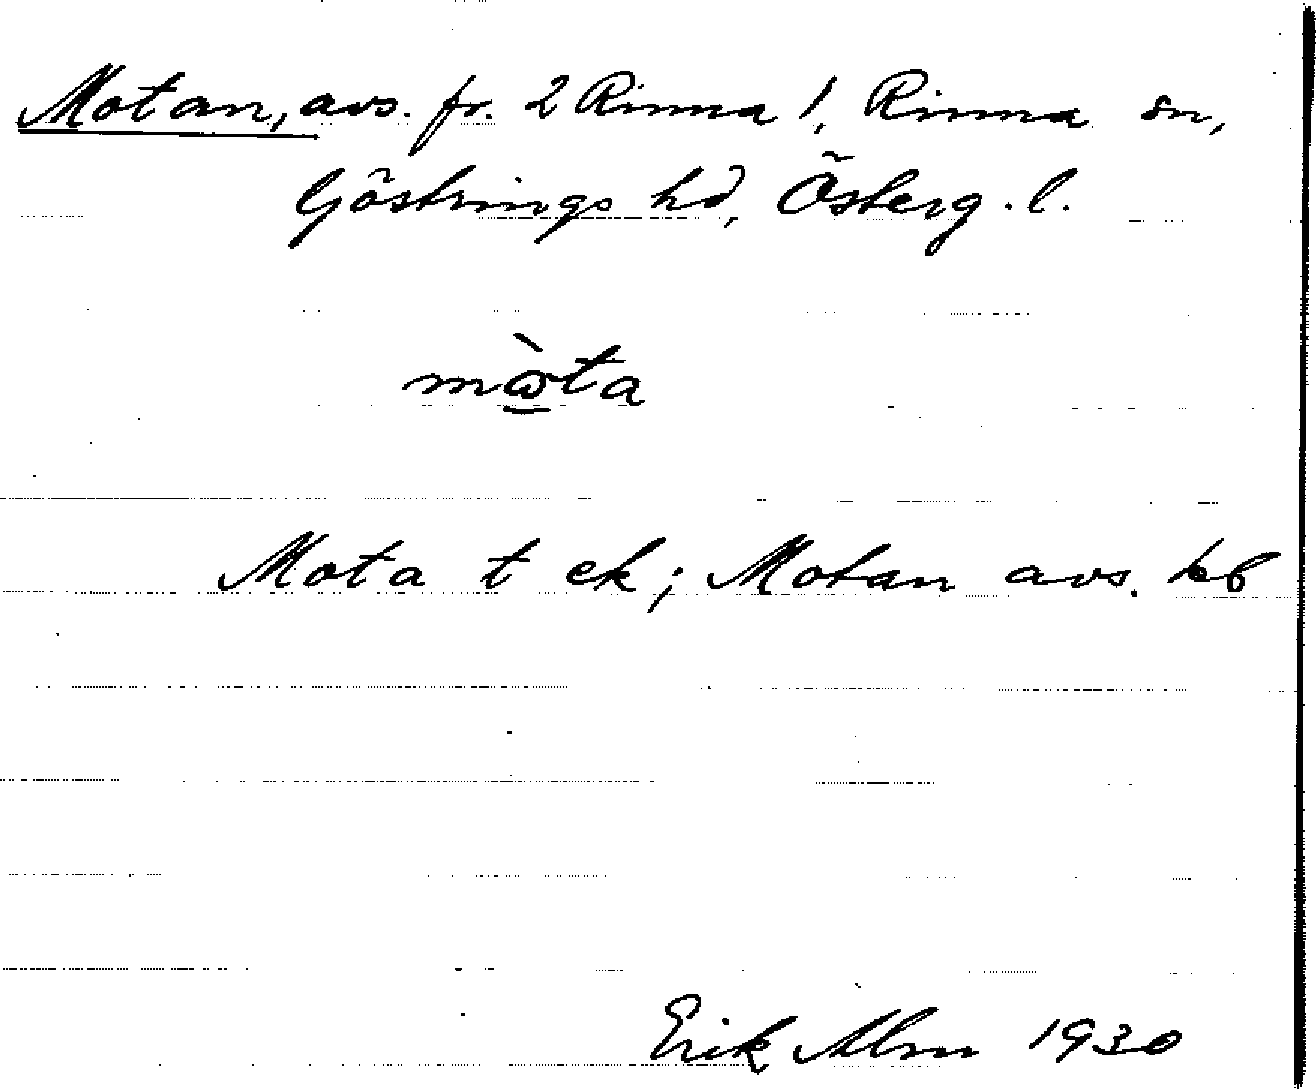 Motan, avs. fr. 2 Rinna 1, Rinna sn,
Göstrings hd, Österg. l.
mὼta
Mota t ek; Motan avs. kb
Erik Alm 1930